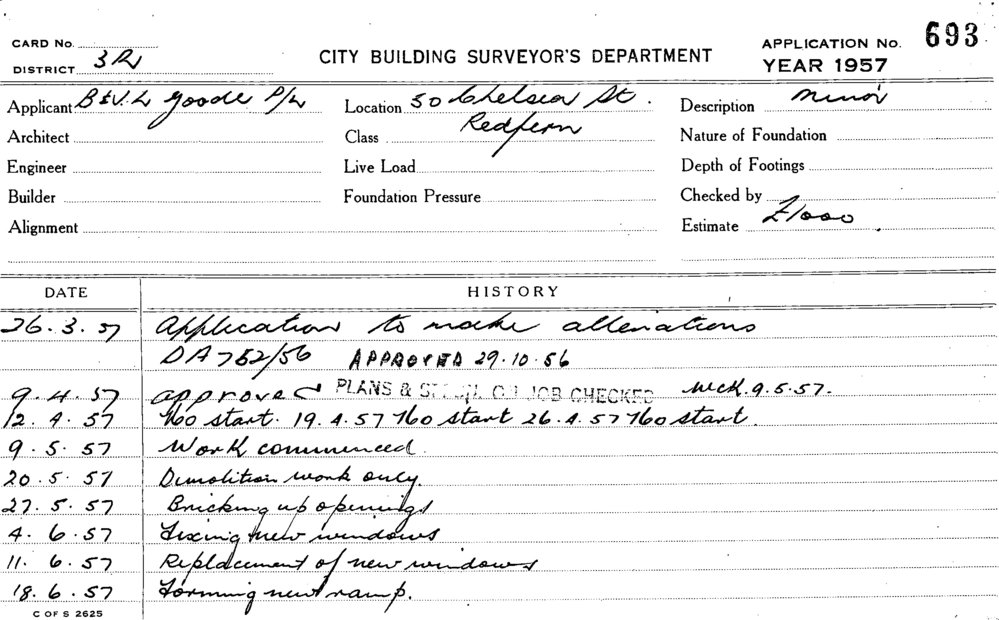 CARD No.
DISTRICT 3R
CITY BUILDING SURVEYOR'S DEPARTMENT
APPLICATION No. 693
YEAR 1957
Applicant B & V.L Goode P/L
Location 50 Chelsea St.
Redfern
Description minor
Architect
Class
Nature of Foundation
Engineer
Live Load
Depth of Footings
Builder
Foundation Pressure
Checked by
Alignment
Estimate £1000
DATE HISTORY
26.3.57 Application to make alterations
DA 752/56 APPROVED 29.10.56
9.4.57 approved PLANS & ON JOB CHECKED McK. 9.5.57.
12.4.57 No start. 19.4.57 No start 26.4.57 No start.
9.5.57 Work commenced.
20.5.57 Demolition work only.
27.5.57 Bricking up openings
4.6.57 Fixing new windows
11.6.57 Replacement of new windows
18.6.57 Forming new ramp.
C OF S 2625